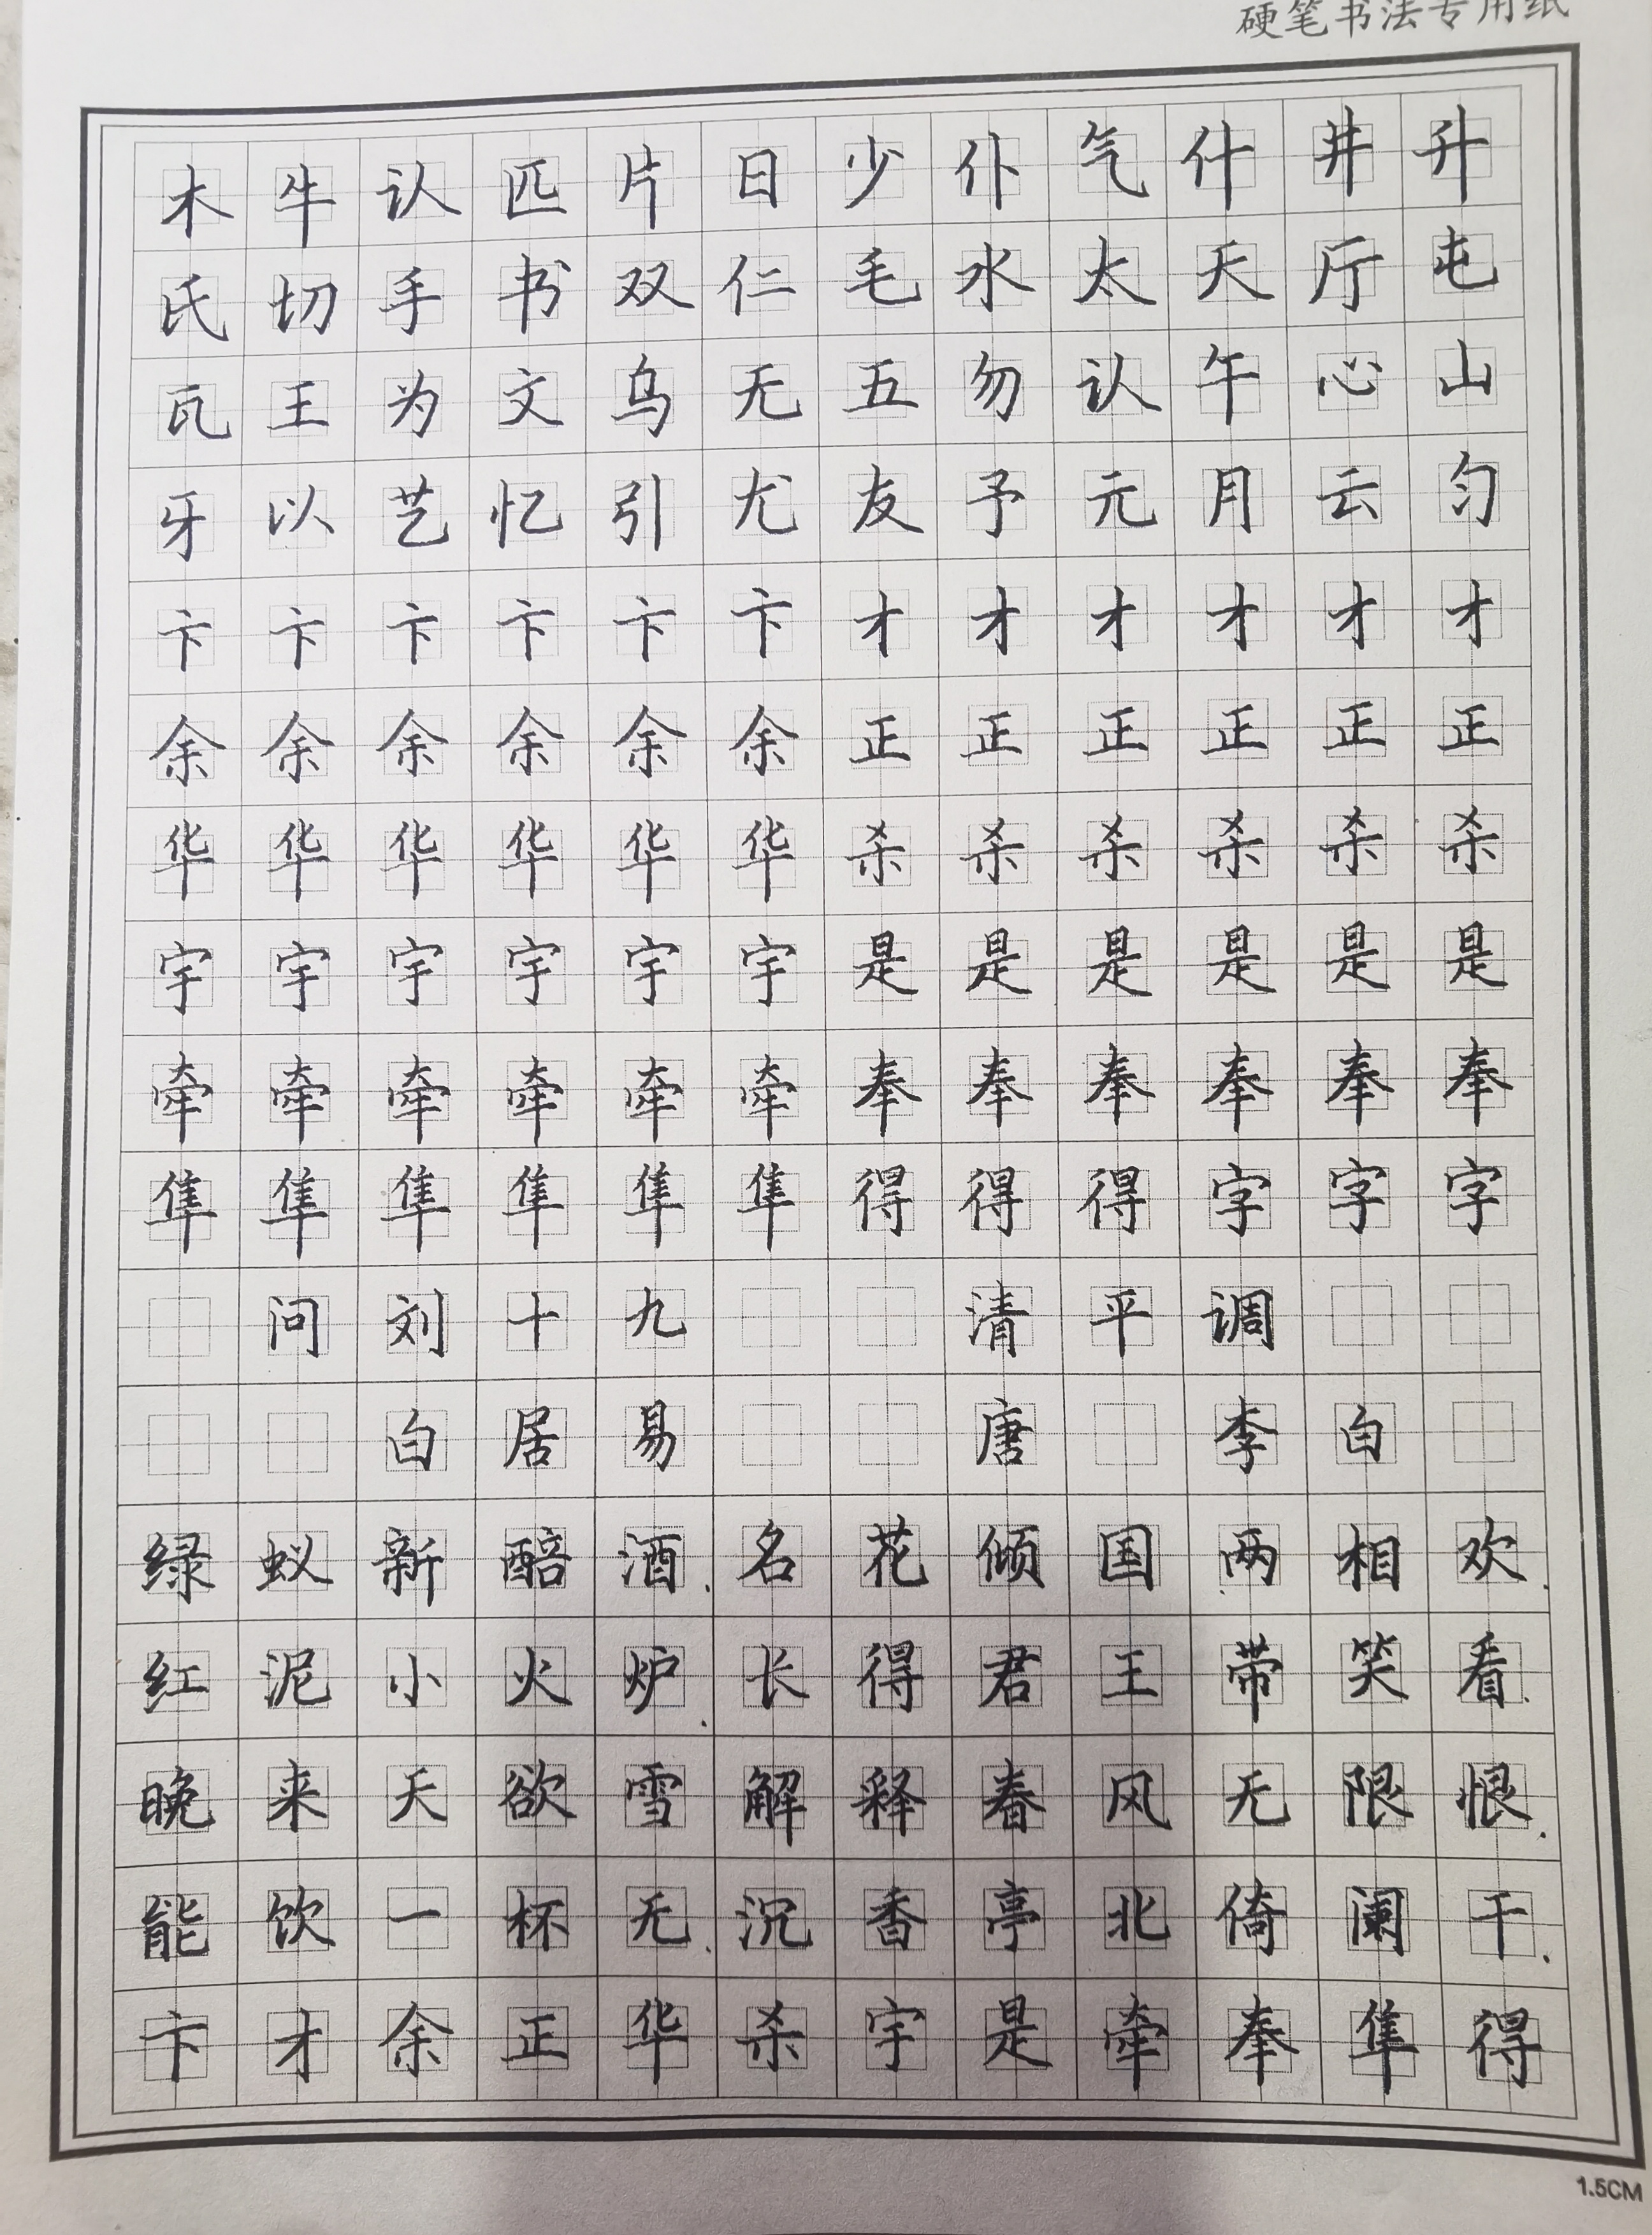 硬笔书法专用纸
木牛认匹片日少仆气什井升
氏切手书双仁毛水太天厅屯
瓦王为文乌无五勿认午心山
牙以艺忆引尤友予元月云匀
卞卞卞卞卞卞才才才才才才
余余余余余余正正正正正正
华华华华华华杀杀杀杀杀杀
宇宇宇宇宇宇是是是是是是
牵牵牵牵牵牵奉奉奉奉奉奉
隼隼隼隼隼隼得得得字字字
问刘十九 清平调
白居易 唐 李白
绿蚁新醅酒.名花倾国两相欢.
红泥小火炉.长得君王带笑看.
晚来天欲雪 解释春风无限恨.
能饮一杯无.沉香亭北倚阑干.
卞才余正华杀宇是牵奉隼得
1.5CM